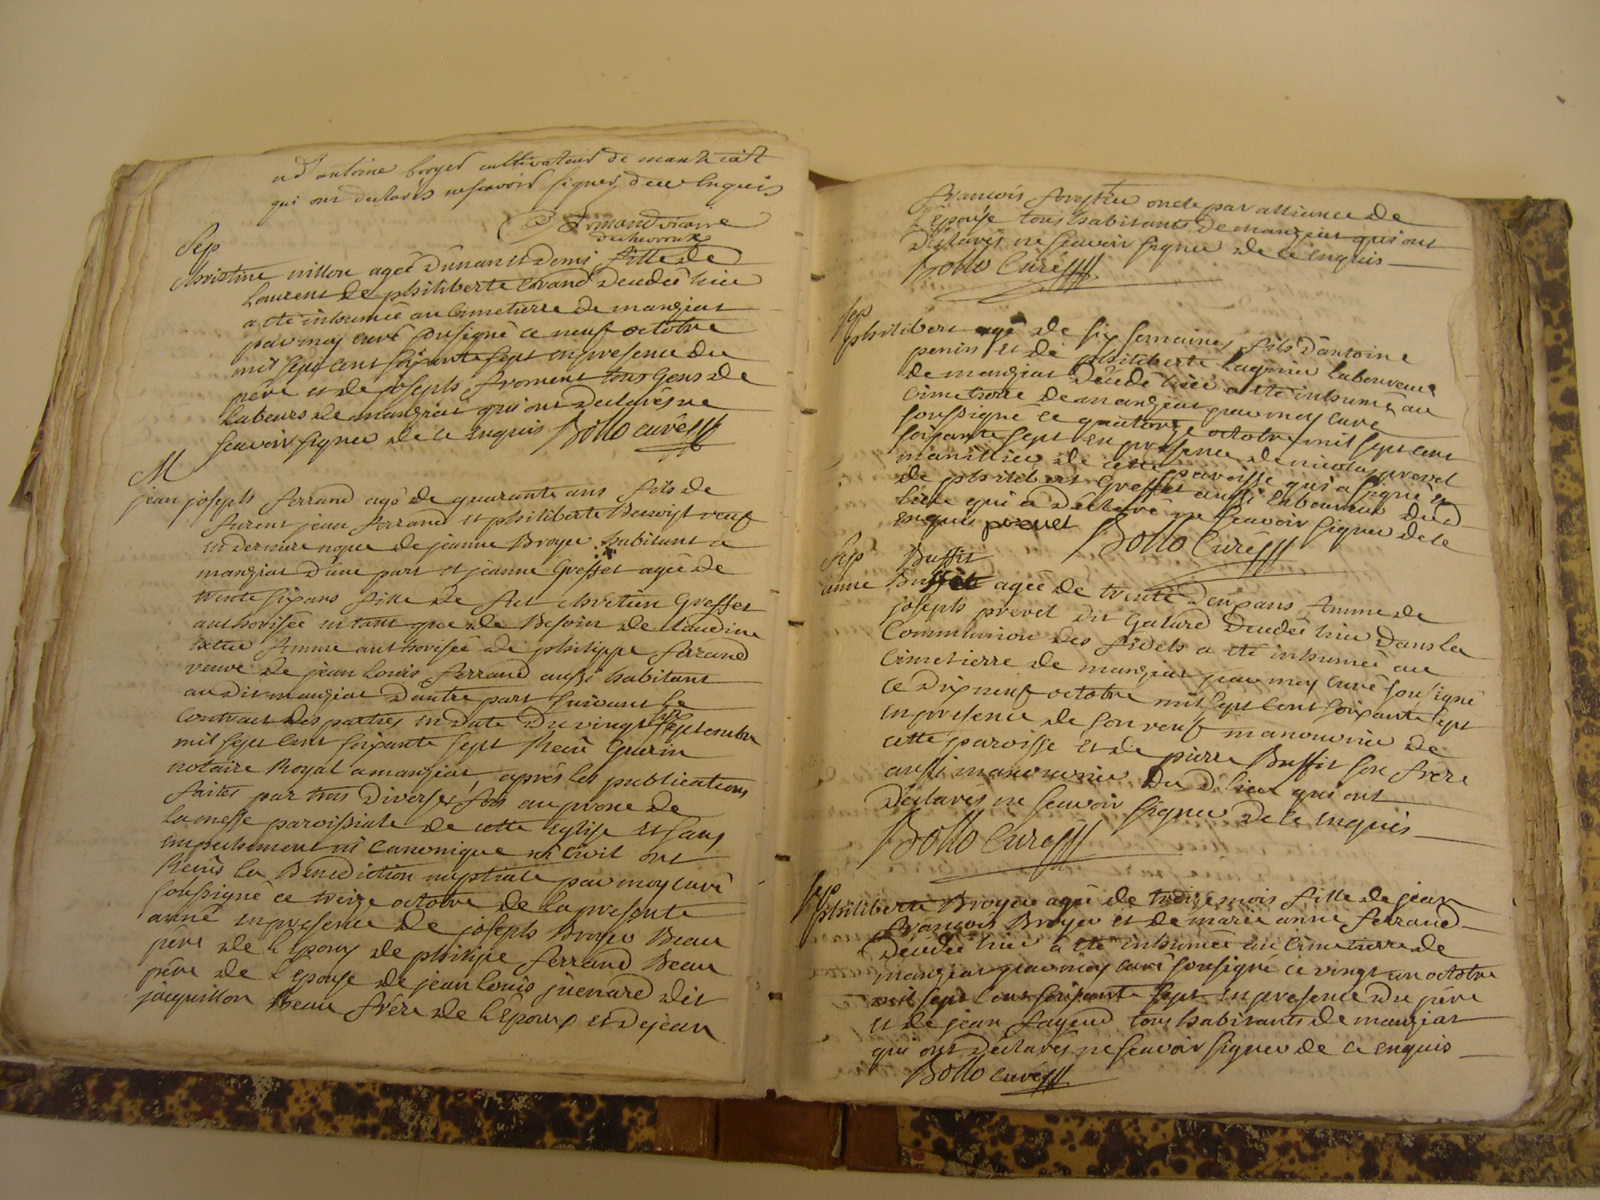 et d'antoine broyer cultivateur de
qui ont declarés ne scavoir signer de ce Enquis
Sep
Christine villon agée d'un an et demi fille de
Laurent et de philiberte Lorand Decedée hier
a eté inhumée au cimetierre de manziat
par moy curé sousigné ce neuf octobre
mil sept cent soixante sept en presence du
père et de joseph froment tous Gens de
Labeurs de manziat qui ont declarés ne
scavoir signer de ce Enquis Bollo curé
M
jean joseph ferrand agé de quarante ans fils de
jean ferrand et philiberte veuf
en derniere nopce de jeanne Broyer habitant a
manziat d'une part et jeanne Greffet agée de
trente six ans fille de fet chretien Greffet
authorisée en tant que de Besoin de claudine
femme authorisée de philippe ferrand
veuve de jean Louis ferrand aussi habitant
au dit manziat d'autre part suivant Le
contract des parties en date du vingt six Septembre
mil sept Cent soixante sept Recû Guerin
notaire Royal a manziat, après les publications
faites par trois Diverses fois au prone de
La messe paroissiale de cette Eglise et sans
empechement ni Canonique ni Civil ont
Recûs La Benediction nuptiale par moy curé
soussigné ce treize octobre de La presente
anné en presence de joseph Broyer Beau
père de L'Epoux de philippe ferrand Beau
père de L'Epouse de jean Louis juenard dit
jacquillon Beau frère de L'Epoux et de jean
françois oncle par alliance de
L'Epouse tous habitants de manziat qui ont
Déclarés ne scavoir signer de ce Enquis
Bollo Curé
Sep
philibert agé de six semaines fils d'antoine
penin et de philiberte Laboureur
de manziat Décédé hier a eté inhumé au
Cimetierre de manziat par moy curé
soussigné ce quatorze octobre mil sept cent
soixante sept en presence de nicolas prevel
de cette paroisse qui a signé et
de philibert Greffet aussi Laboureur dud
Lieu qui a déclaré ne scavoir signer de ce
enquis prevel Bollo Curé
Sep Buffit
anne agée de trente deux ans femme de
joseph prevel dit Galurd Decedée hier Dans La
Communion des fidels a eté inhumée au
Cimetierre de manziat par moy curé sousigné
ce Dix neuf octobre mil sept Cent soixante sept
en presence de son veuf manouvrier de
cette paroisse et de pierre Buffit son frère
aussi manouvrier Du d. Lieu qui ont
Déclarés ne scavoir signer de ce Enquis
Bollo Curé
Sep
philiberte Broyer agée de treize mois fille de jean
françois Broyer et de marie anne ferrand
Decedée hier a eté inhumée au Cimetierre de
manziat par moy curé sousigné ce vingt un octobre
mil sept Cent soixante sept en presence Du père
et de jean fayend tous habitants de manziat
qui ont Déclarés ne scavoir signer de ce enquis
Bollo curé